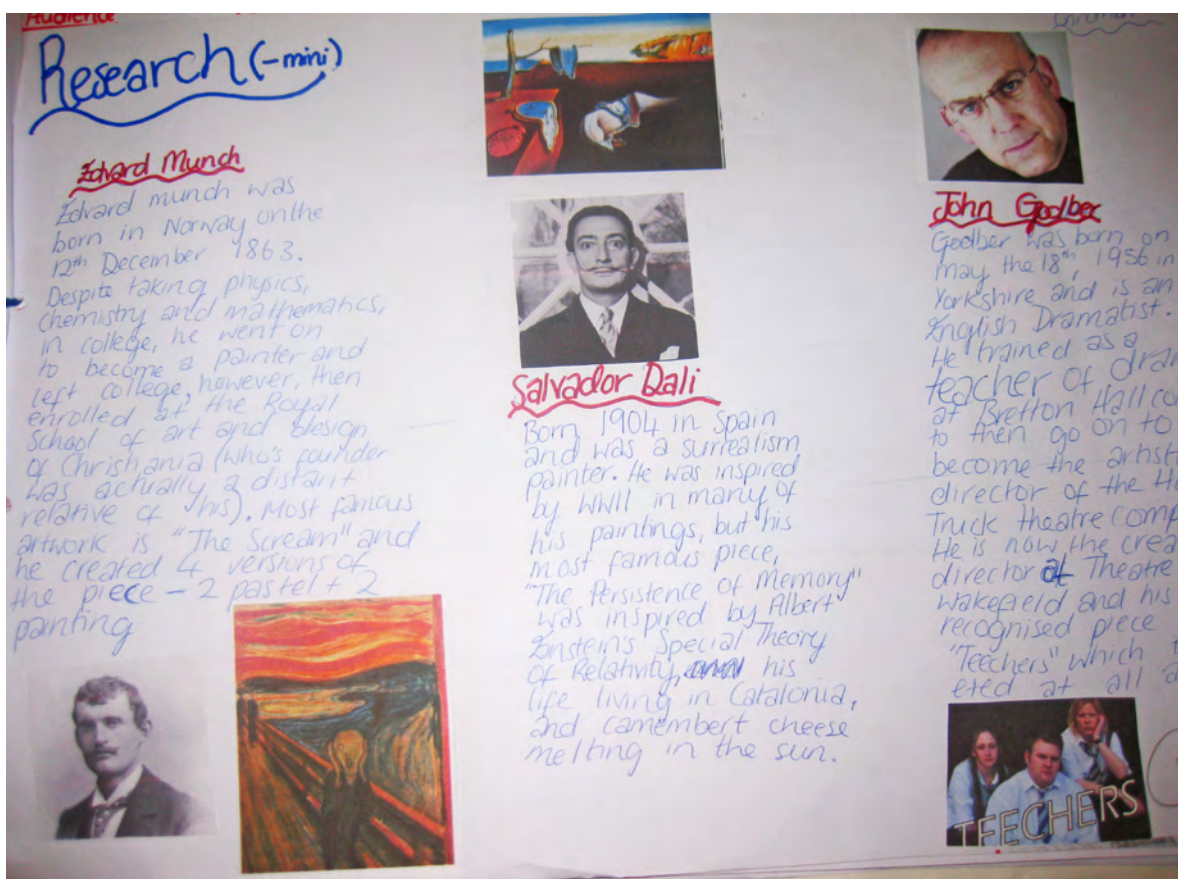 Audience
Research (-mini)
Edvard Munch
Edvard munch was
born in Norway on the
12th December 1863.
Despite taking physics,
chemistry and mathematics,
in college, he went on
to become a painter and
left college, however, then
enrolled at the Royal
School of art and Design
of Christiania (who's founder
was actually a distant
relative of his). Most famous
artwork is "The Scream" and
he created 4 versions of
the piece - 2 pastel + 2
painting
Salvador Dali
Born 1904 in Spain
and was a surrealism
painter. He was inspired
by WWII in many of
his paintings, but his
most famous piece,
"The Persistence of Memory"
was inspired by Albert
Einstein's Special Theory
of Relativity, his
life living in Catalonia,
and camembert cheese
melting in the sun.
John Godber
Godber was born on
may the 18th, 1956 in
Yorkshire and is an
English Dramatist.
He trained as a
teacher of dra
at Bretton Hall co
to then go on to
become the artist
director of the H
Truck theatre Comp
He is now the crea
director of Theatre
Wakefield and his
recognised piece
"Teechers" which
at all a
TEECHERS